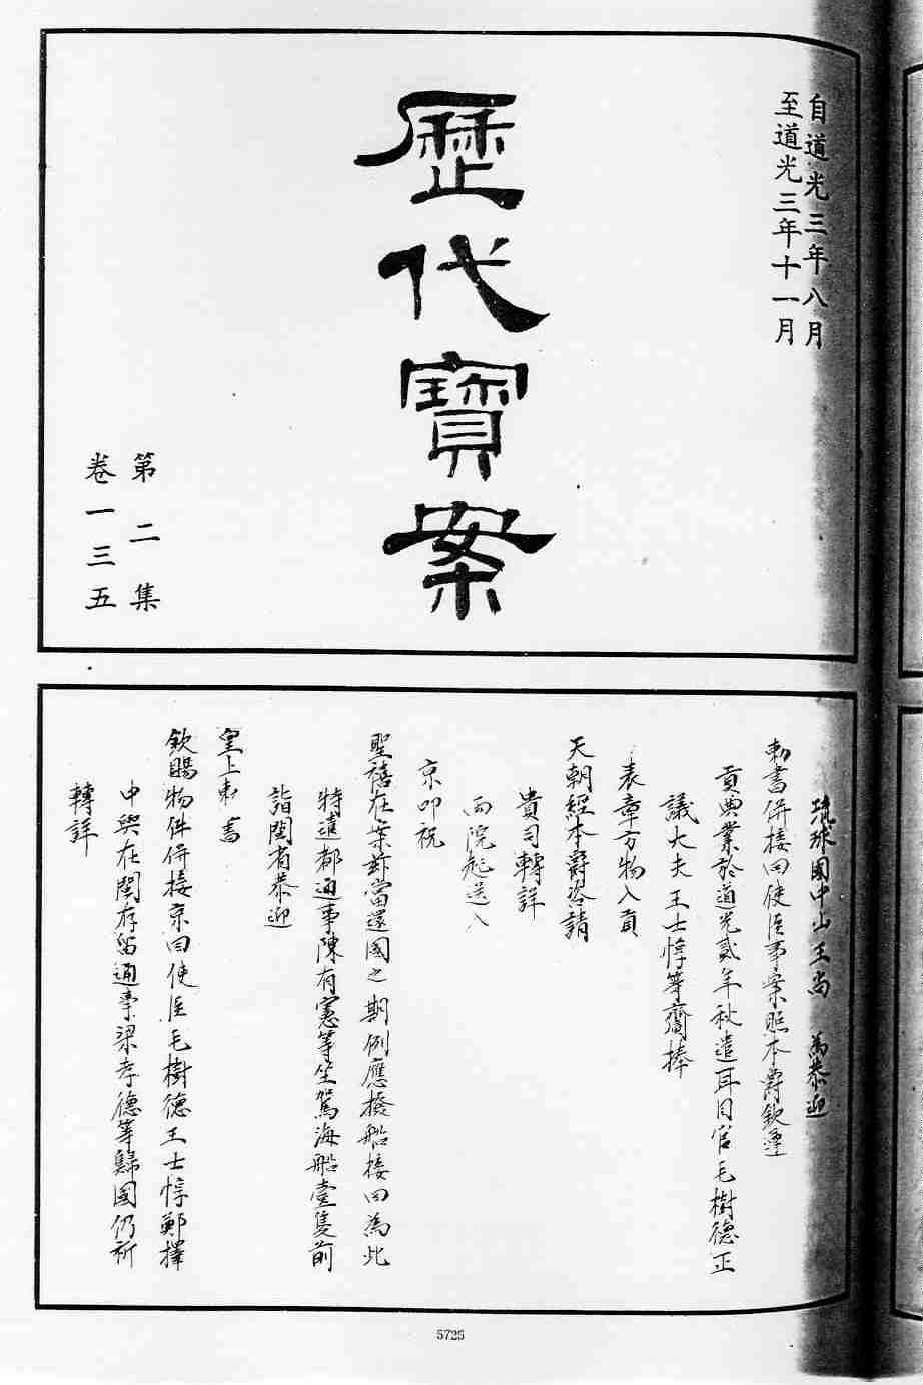 自道光三年八月
至道光三年十一月
歷代寶案
第二集
卷一三五
琉球國中山王尚 為恭迎
勅書併接回使臣事案照本爵欽遵
貢典業於道光貳年秋遣耳目官毛樹德正
議大夫王士惇等齎捧
表章方物入貢
天朝經本爵咨請
貴司轉詳
兩院起送入
京叩祝
聖禧在案茲當還國之期例應撥船接回為此
特遣都通事陳有憲等坐駕海船壹隻前
詣閩省恭迎
皇上勅書
欽賜物件併接京回使臣毛樹德王士惇鄭擇
中與在閩存留通事梁孝德等歸國仍祈
轉詳
5725